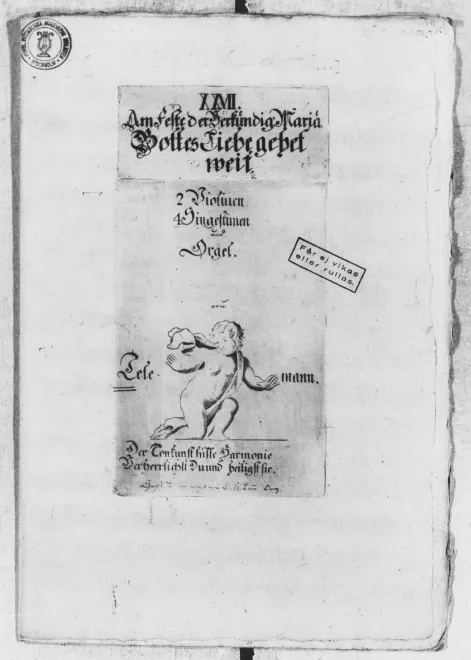 XXVII.
Am Feste der Verkündig: Mariä
Gottes Liebe gehet
weit.
2 Violinen
4 Singestimen
und
Orgel.
von
Tele-
mann.
Får ej vikas
eller rullas.
Der Tonkunst süsse Harmonie
Verherrlichst Du und heiligst sie.